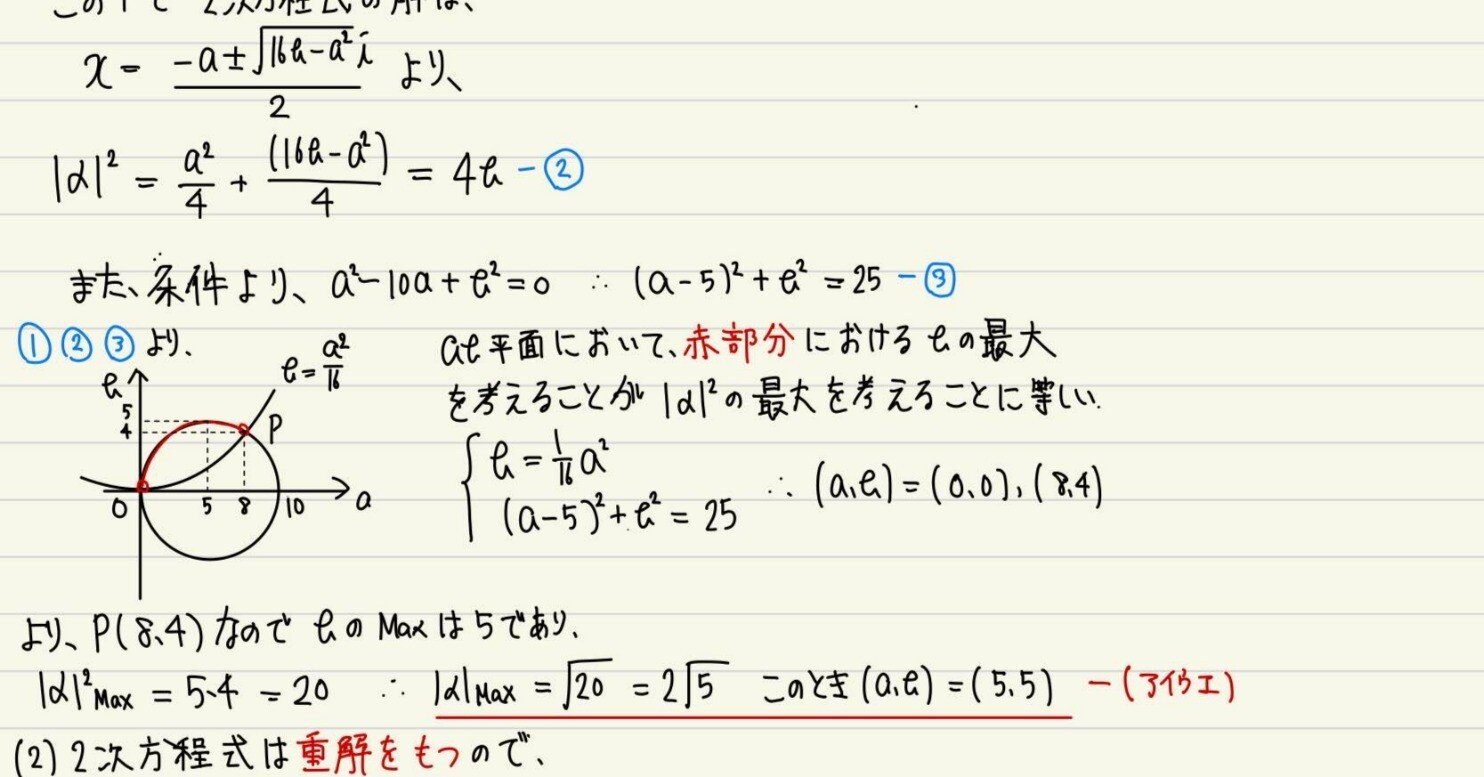 このもとで 2次方程式の解は、
x = (-a±√(16b-a²) i)/2 より、
|α|² = a²/4 + (16b-a²)/4 = 4b -②
また、条件より、a²-10a+b²=0 ∴ (a-5)²+b²=25 -③
①②③より、
b
b=a²/16
5
4
P
0
5
8
10
a
ab平面において、赤部分におけるbの最大
を考えることが |α|²の最大を考えることに等しい.
{ b=1/16 a²
(a-5)²+b²=25
∴ (a,b)=(0,0),(8,4)
より、P(8,4)なので bのMaxは5であり、
|α|²Max = 5·4 = 20 ∴ |α|Max = √20 = 2√5 このとき(a,b)=(5,5) -(アイウエ)
(2) 2次方程式は重解をもつので、